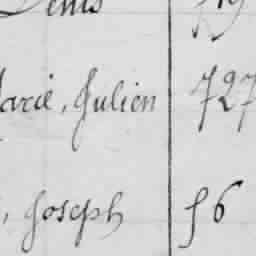 Denis
Marie, Julien 727
, Joseph 56